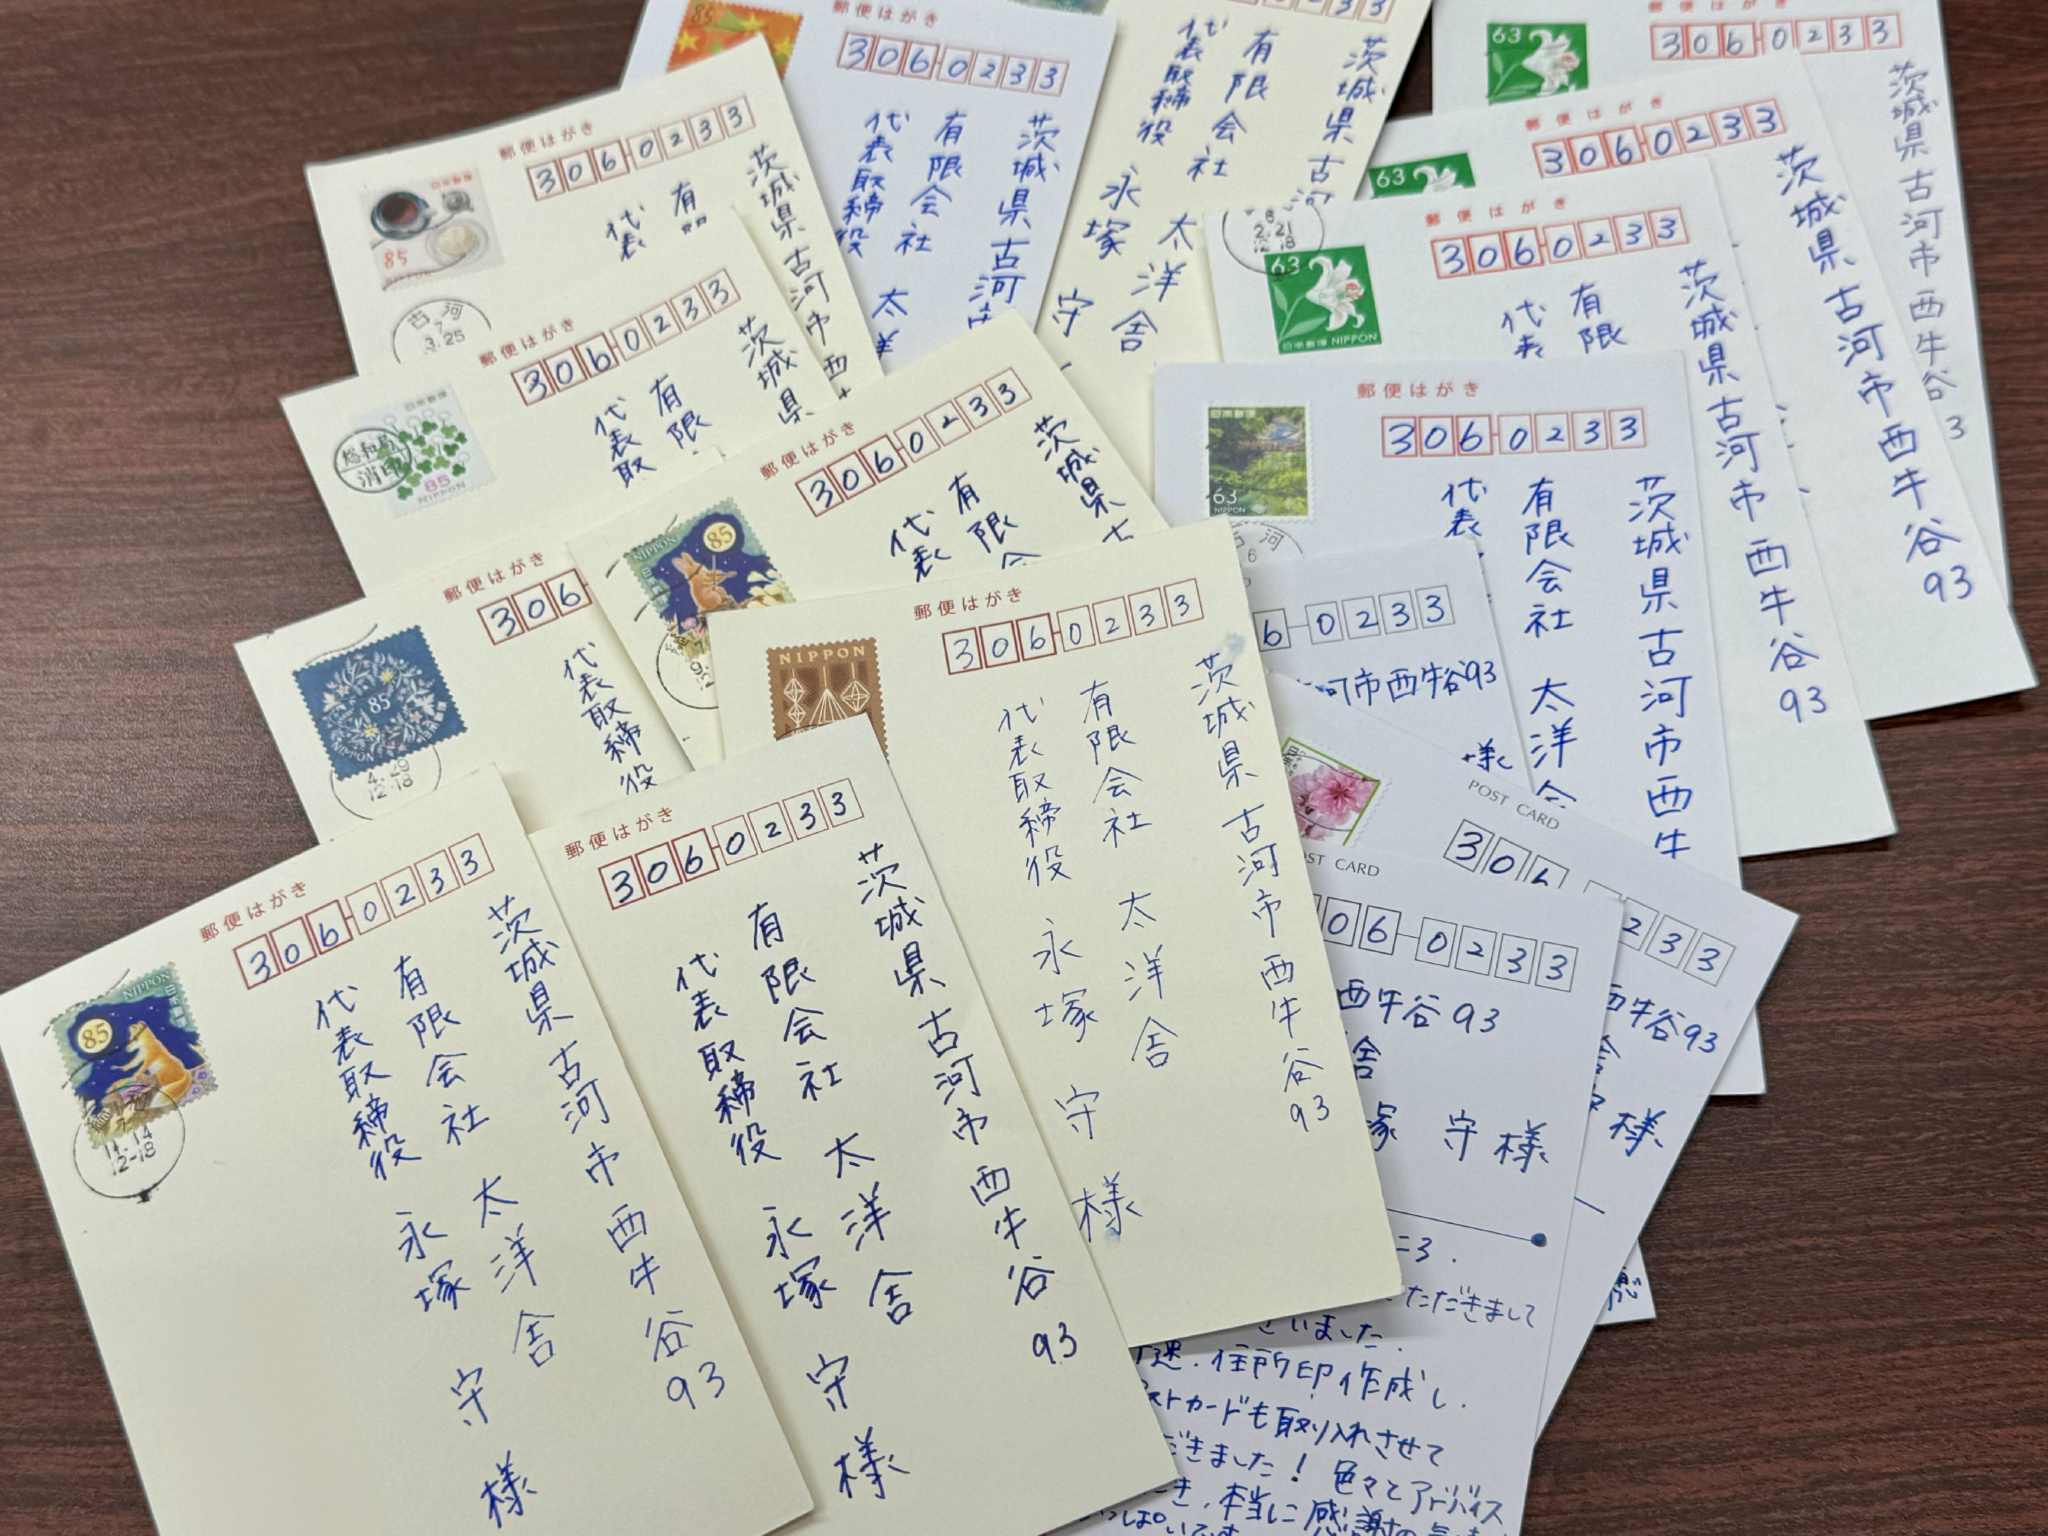 郵便はがき
306-0233
茨城県古河市西牛谷93
有限会社 太洋舎
代表取締役 永塚 守 様
NIPPON
85
11.14
12-18
郵便はがき
306-0233
茨城県古河市西牛谷93
有限会社 太洋舎
代表取締役 永塚 守 様
郵便はがき
306-0233
茨城県 古河市西牛谷93
有限会社 太洋舎
代表取締役 永塚 守 様
NIPPON
郵便はがき
306
代表取締役
85
NIPPON
4.29
12-18
郵便はがき
306-0233
茨城県古
有限会
代表
NIPPON
85
郵便はがき
306-0233
茨城県
有限
代表取
日本郵便
85
NIPPON
消印
郵便はがき
306-0233
茨城県古河市西
有
代表
日本郵便
85
NIPPON
古河
7
3.25
郵便はがき
306-0233
茨城県古河市
有限会社 太洋
代表取締役
85
茨城県古河
有限会社 太洋舎
代表取締役 永塚 守
306-0233
茨城県古河市西牛谷93
63
郵便はがき
306-0233
茨城県古河市西牛谷93
63
郵便はがき
306-0233
茨城県古河市西牛谷93
有限
代表
63
日本郵便 NIPPON
8
2.21
12-18
郵便はがき
306-0233
茨城県古河市西牛
有限会社 太洋舎
代表
日本郵便
63
NIPPON
古河
6
6-0233
河市西牛谷93
様
POST CARD
306
233
西牛谷93
舎
様
POST CARD
06-0233
西牛谷93
舎
塚 守 様
ただきまして
ざいました.
速.住所印作成し.
ストカードも取り入れさせて
だきました! 色々とアドバイス
き.本当に感謝の気